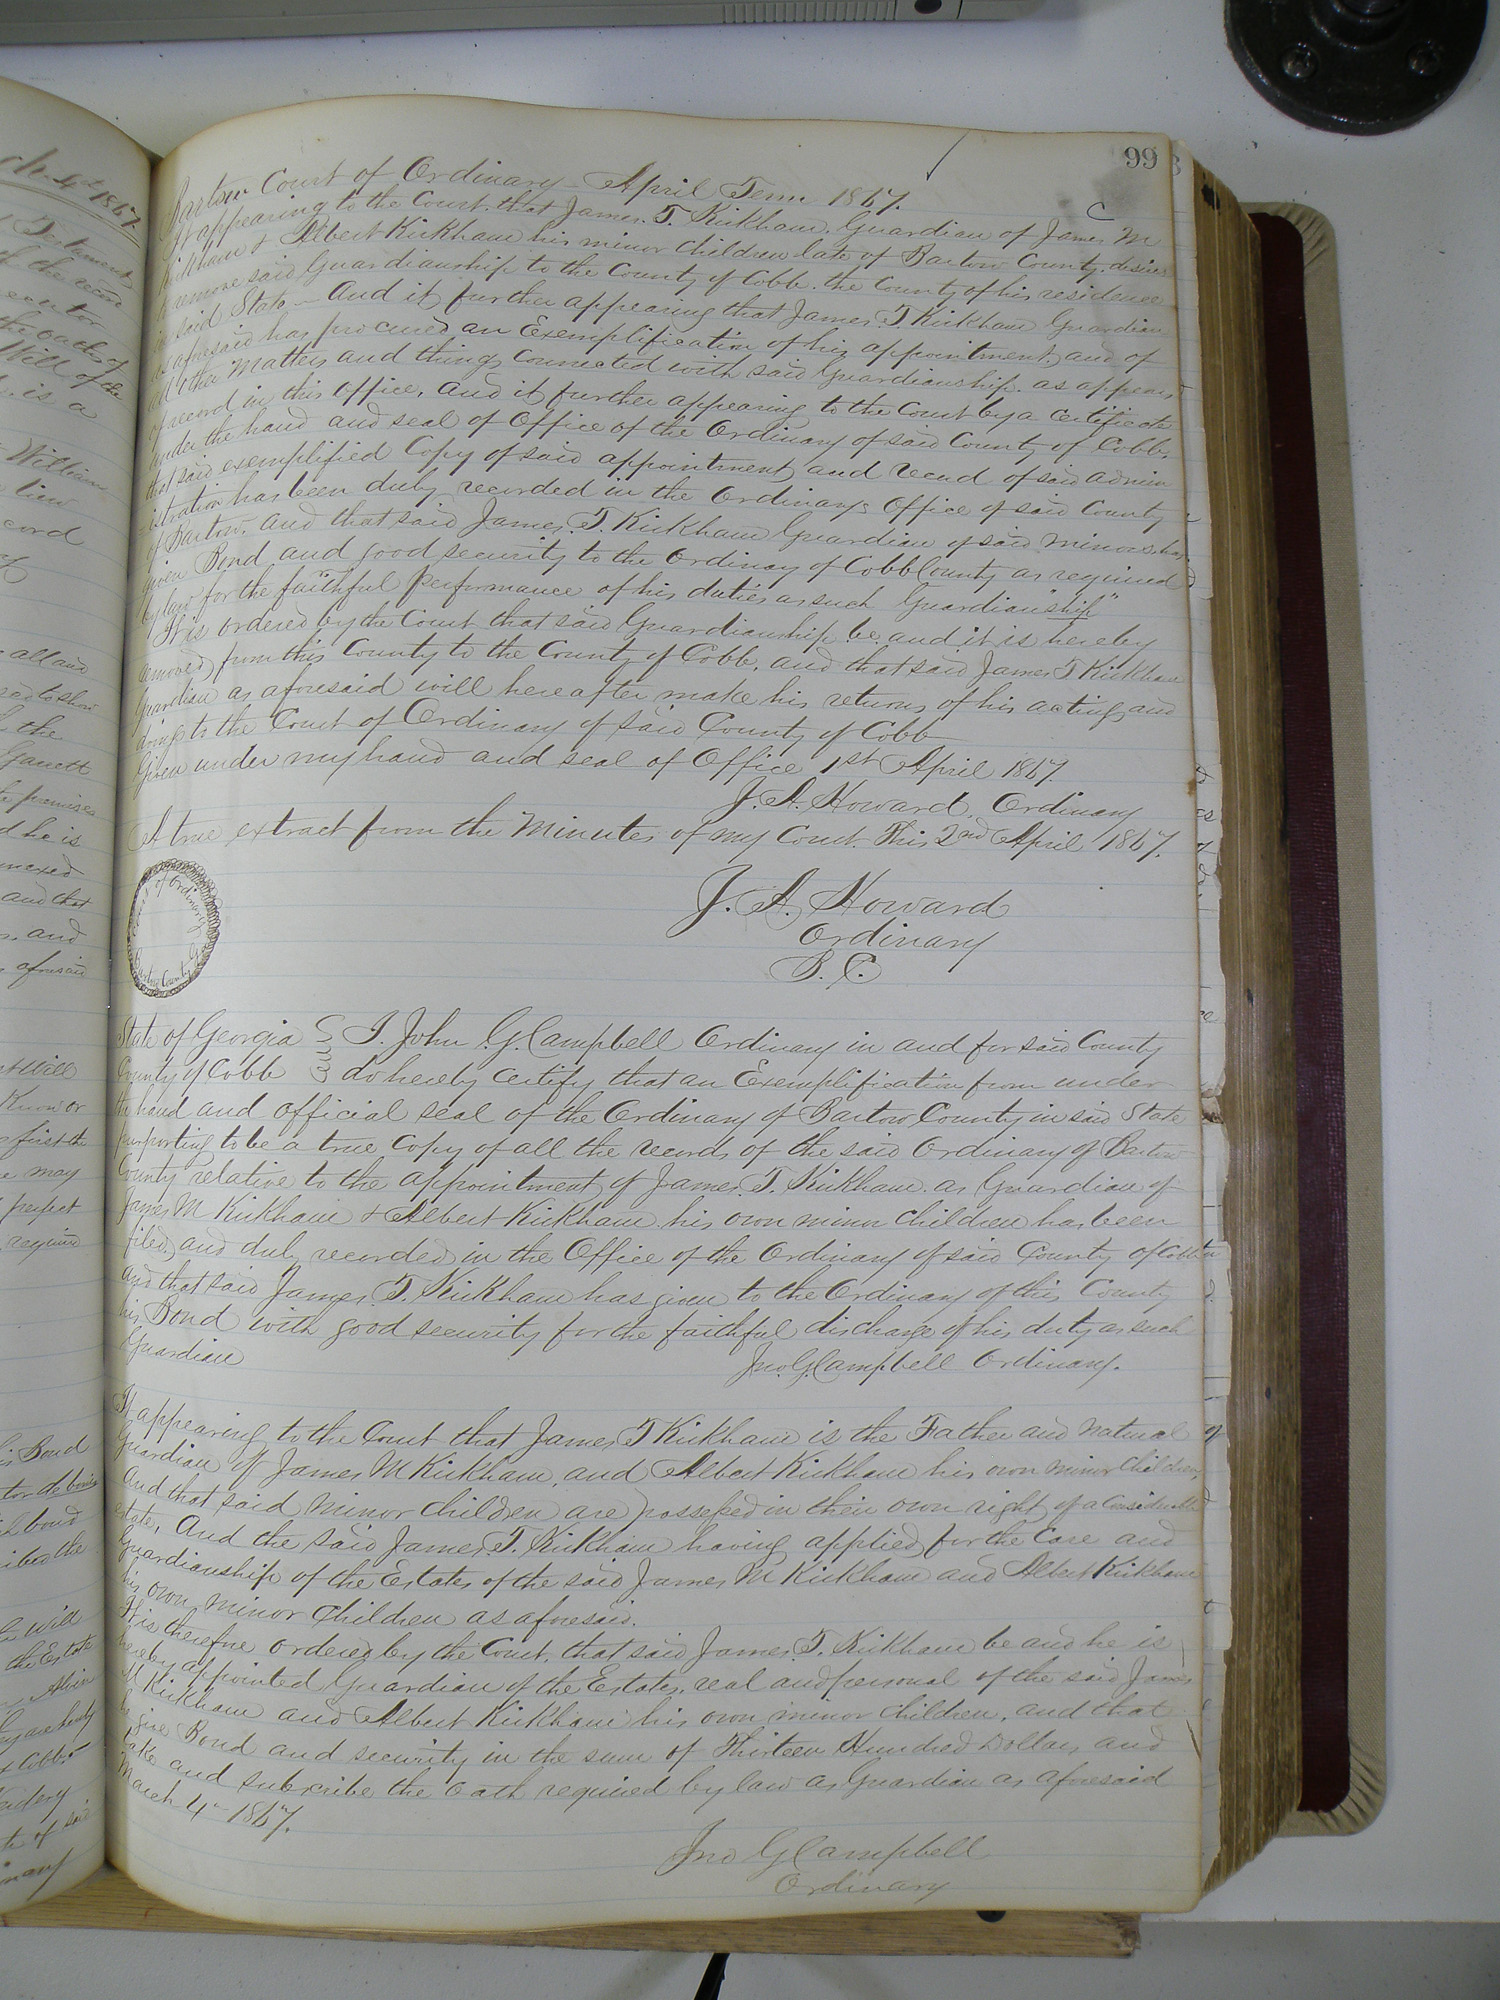 99
Bartow Court of Ordinary April Term 1867.
It appearing to the Court that James T. Kirkham Guardian of James M
Kirkham & Albert Kirkham his minor Children late of Bartow County, desires
to remove said Guardianship to the County of Cobb, the County of his residence
in said State — And it further appearing that James T. Kirkham Guardian
as aforesaid has procured an Exemplification of his appointment, and of
all other matters and things Connected with said Guardianship as appears
of record in this office, and it further appearing to the Court by a Certificate
under the hand and seal of Office of the Ordinary of said County of Cobb,
that said exemplified Copy of said appointment, and record of said admin
istration has been duly recorded in the Ordinarys Office of said County
of Bartow, and that said James T. Kirkham Guardian of said minors has
given Bond and good security to the Ordinary of Cobb County as required
by law for the faithful performance of his duties as such Guardian"ship"
It is ordered by the Court that said Guardianship be and it is hereby
removed from this County to the County of Cobb, and that said James T Kirkham
Guardian as aforesaid will hereafter make his returns of his actings and
doings to the Court of Ordinary of said County of Cobb
Given under my hand and seal of Office 1st April 1867.
J. A. Howard, Ordinary
A true extract from the Minutes of my Court. This 2nd April 1867.
of Ordinary
Bartow County Ga
J. A. Howard
Ordinary
B. C.
State of Georgia I, John G. Campbell Ordinary in and for said County
County of Cobb do hereby certify that an Exemplification from under
the hand and official seal of the Ordinary of Bartow County in said State
purporting to be a true Copy of all the records of the said Ordinary of Bartow
County relative to the appointment of James T. Kirkham as Guardian of
James M Kirkham & Albert Kirkham his own minor children has been
filed, and duly recorded in the Office of the Ordinary of said County of Cobb
and that said James T. Kirkham has given to the Ordinary of this County
his Bond with good security for the faithful discharge of his duty as such
Guardian
Jno. G. Campbell Ordinary.
It appearing to the Court that James T Kirkham is the Father and natural
Guardian of James M Kirkham, and Albert Kirkham his own minor Children,
And that said minor children are possessed in their own right of a Considerable
estate, And the said James T. Kirkham having applied for the Care and
Guardianship of the Estates of the said James M Kirkham and Albert Kirkham
his own minor Children as aforesaid.
It is therefore ordered by the Court, that said James T. Kirkham be and he is
hereby appointed Guardian of the Estates, real and personal of the said James
M Kirkham and Albert Kirkham his own minor children, and that
he give Bond and security in the sum of Thirteen Hundred Dollars, and
take and subscribe the oath required by law as Guardian as aforesaid
March 4th 1867.
Jno G Campbell
Ordinary